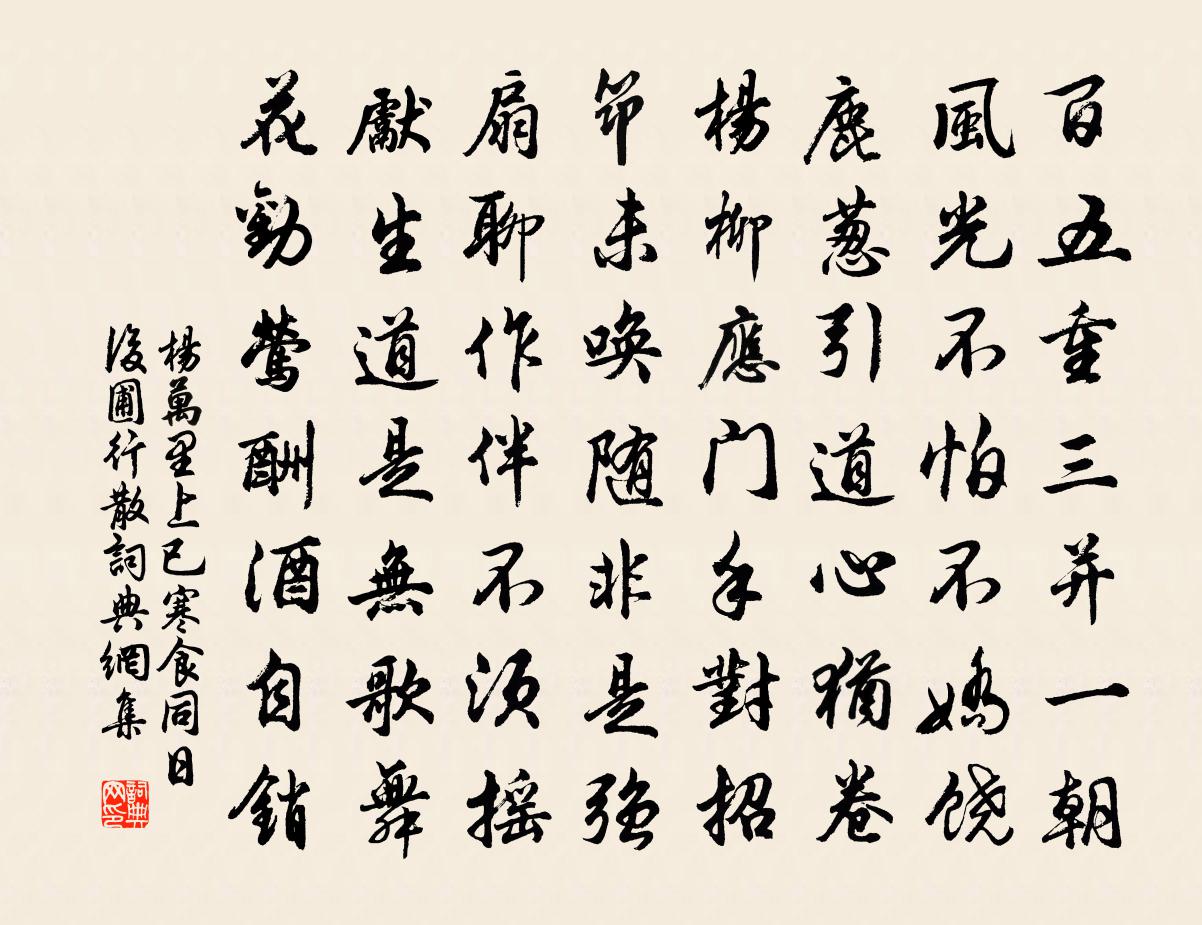 百五重三并一朝
風光不怕不嬌饒
鹿葱引道心猶卷
楊柳應门手對招
笻未唤随非是强
扇聊作伴不須摇
獻生道是無歌舞
花勸鶯酬酒自銷
楊萬里上已寒食同日
後圃行散詞典網集
詞典
网印